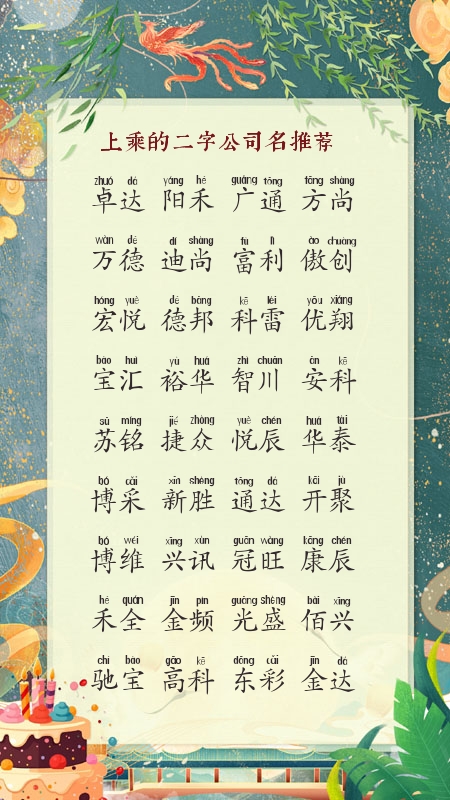 上乘的二字公司名推荐
zhuó dá yáng hé guǎng tōng fāng shàng
卓达 阳禾 广通 方尚
wàn dé dí shàng fù lì ào chuàng
万德 迪尚 富利 傲创
hóng yuè dé bāng kē léi yōu xiáng
宏悦 德邦 科雷 优翔
bǎo huì yù huá zhì chuān ān kē
宝汇 裕华 智川 安科
sū míng jié zhòng yuè chén huá tài
苏铭 捷众 悦辰 华泰
bó cǎi xīn shèng tōng dá kāi jù
博采 新胜 通达 开聚
bó wéi xīng xùn guān wàng kāng chén
博维 兴讯 冠旺 康辰
hé quán jīn pín guāng shèng bǎi xīng
禾全 金频 光盛 佰兴
chí bǎo gāo kē dōng cǎi jīn dá
驰宝 高科 东彩 金达